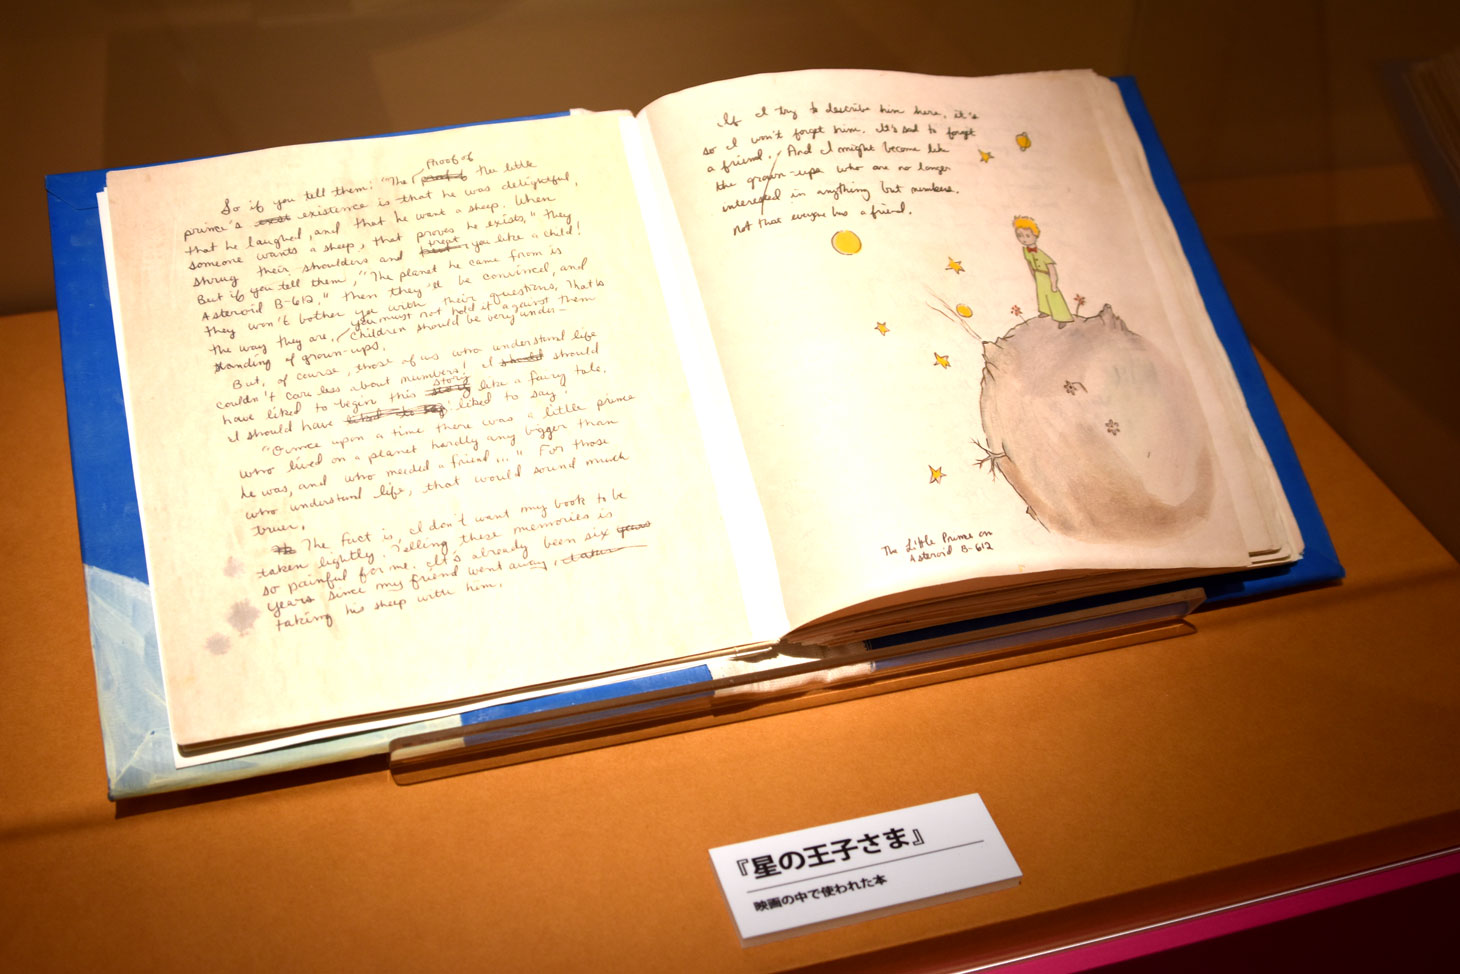 Proof of
So if you tell them: "The proof of the little
prince's exist existence is that he was delightful,
that he laughed, and that he want a sheep. When
someone wants a sheep, that proves he exists," they
treat
shrug their shoulders and you like a child!
But if you tell them, "The planet he came from is
Asteroid B-612," then they'll be convinced, and
they won't bother you with their questions. That's
you must not hold it against them
the way they are. Children should be very under-
standing of grown-ups.
But, of course, those of us who understand life
couldn't care less about numbers! I should should
story
have liked to begin this story like a fairy tale.
I should have liked to say liked to say:
"Once upon a time there was a little prince
who lived on a planet hardly any bigger than
he was, and who needed a friend..." For those
who understand life, that would sound much
truer.
The fact is, I don't want my book to be
taken lightly. Telling these memories is
so painful for me. It's already been six years
years since my friend went away,
taking his sheep with him.
If I try to describe him here, it's
so I won't forget him. It's sad to forget
a friend. And I might become like
the grown-ups who are no longer
interested in anything but numbers.
Not that everyone has a friend.
The Little Prince on
Asteroid B-612
『星の王子さま』
映画の中で使われた本